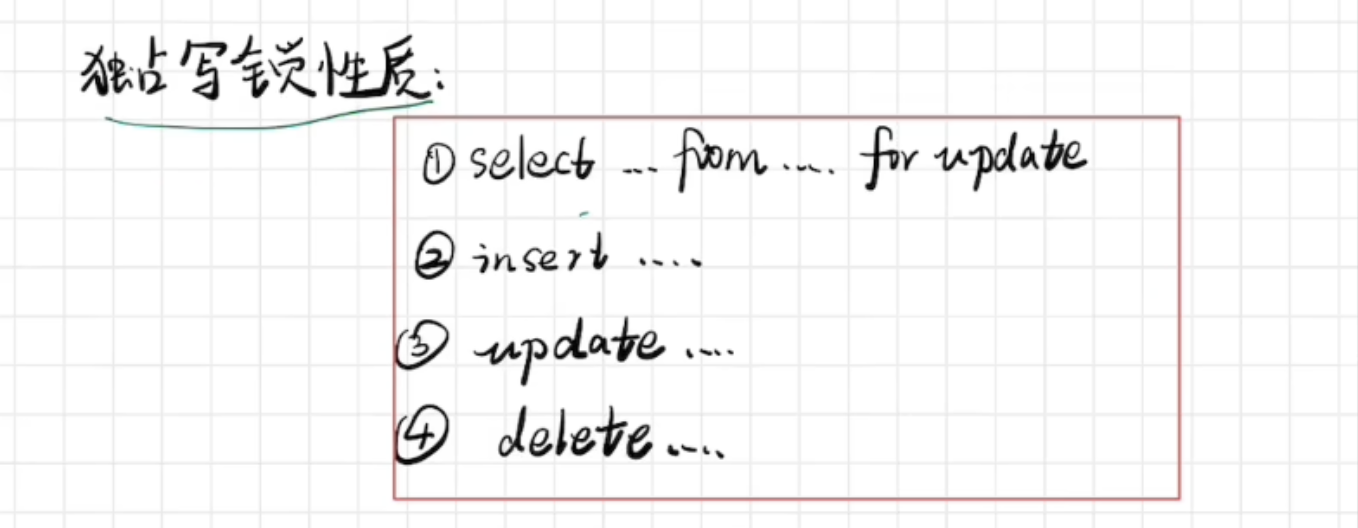 独占写锁性质:
① select ... from .... for update
② insert ....
③ update ....
④ delete ....